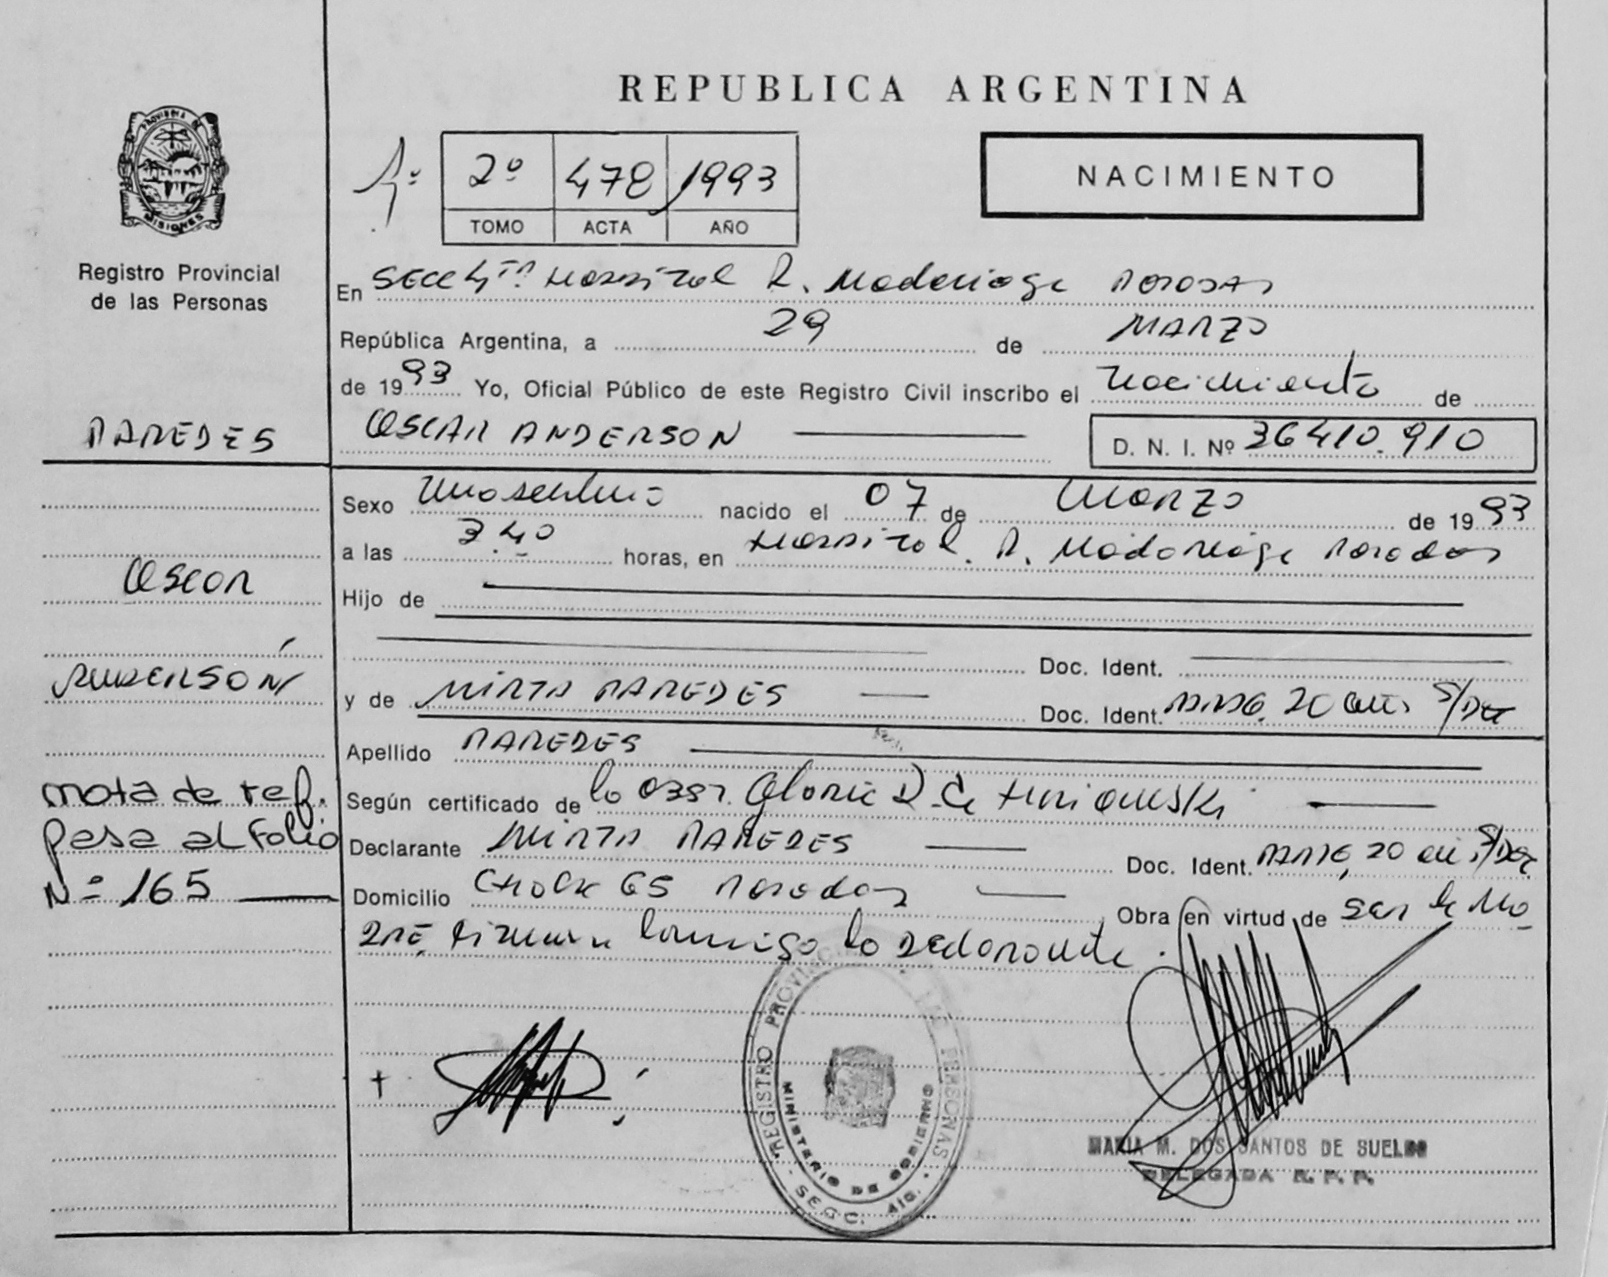 REPUBLICA ARGENTINA
PROVINCIA DE MISIONES
Registro Provincial
de las Personas
2º 478 1993
TOMO ACTA AÑO
NACIMIENTO
En SECC 4ta Hospital R. Madariaga Posadas
República Argentina, a 29 de MARZO
de 1993 Yo, Oficial Público de este Registro Civil inscribo el Nacimiento de
PAREDES
OSCAR ANDERSON
D. N. I. Nº 36410.910
Sexo Masculino nacido el 07 de Marzo de 1993
a las 3 40 horas, en Hospital. R. Madariaga Posadas
Oscar
Hijo de
Doc. Ident.
ANDERSON
y de MIRTA PAREDES Doc. Ident. 20 S/Doc
Apellido PAREDES
nota de ref.
pasa al Folio
Nº 165
Según certificado de la Obst. Gloria D. de
Declarante MIRTA PAREDES Doc. Ident. 20 S/Doc
Domicilio 65 Posadas Obra en virtud de ser la Ma
dre, Firma conmigo la Declarante.
REGISTRO PROVINCIAL DE LAS PERSONAS
MINISTERIO DE GOBIERNO
SECC. 4ta.
MARIA M. DOS SANTOS DE SUELDO
DELEGADA R. P. P.